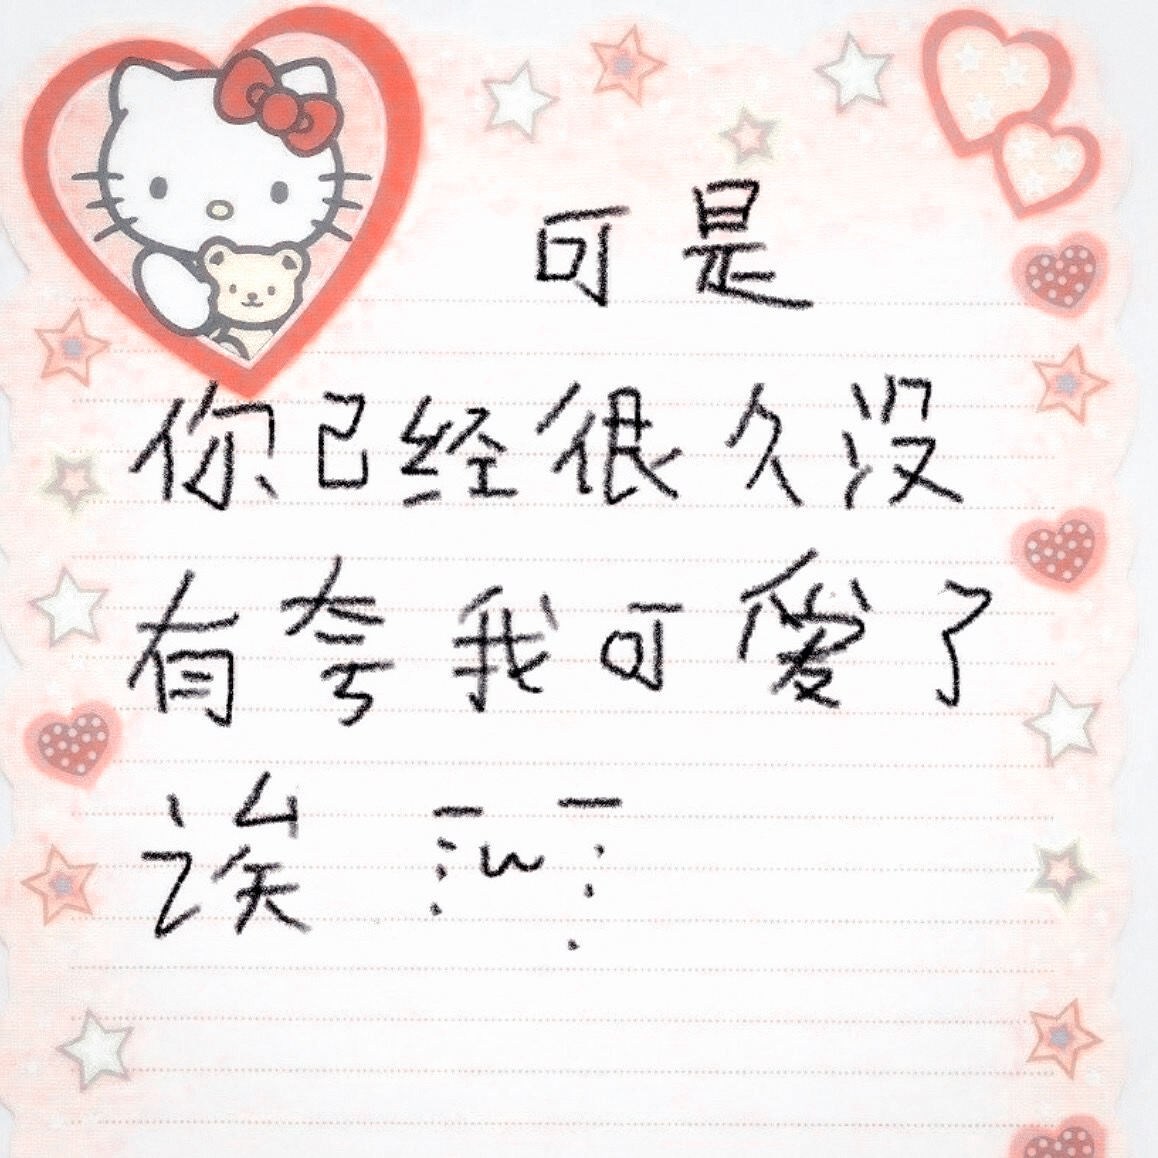 可是
你已经很久没
有夸我可愛了
诶